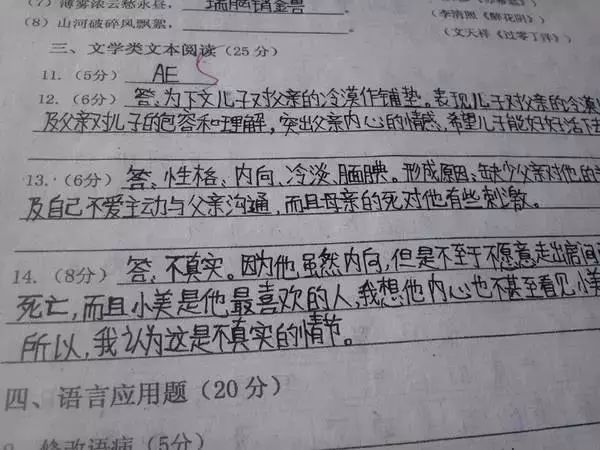 (7) 薄雾浓云愁永昼, 瑞脑销金兽
(8) 山河破碎风飘絮, (李清照《醉花阴》)
(文天祥《过零丁洋》)
三、文学类文本阅读(25分)
11. (5分) AE
12. (6分) 答:为下文儿子对父亲的冷漠作铺垫。表现儿子对父亲的冷漠
及父亲对儿子的包容和理解,突出父亲内心的情感,希望儿子能好好活下去
13. (6分) 答:性格:内向、冷淡、腼腆。形成原因:缺少父亲对他的
及自己不爱主动与父亲沟通,而且母亲的死对他有些刺激。
14. (8分) 答:不真实。因为他虽然内向,但是不至于不愿意走出房间
死亡,而且小美是他最喜欢的人,我想他内心也不甚至看见小美
所以,我认为这是不真实的情节。
四、语言应用题(20分)
修改语病(5分)